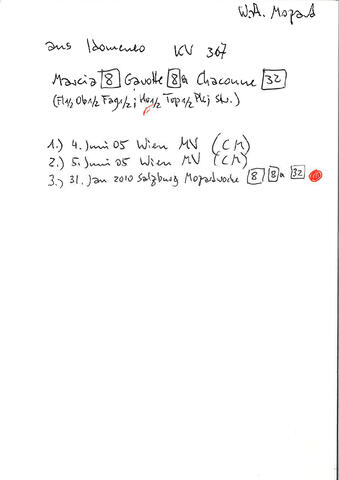 W.A. Mozart
aus Idomeneo KV 367
Marcia 8 Gavotte 8a Chaconne 32
(Fl1/2 Ob1/2 Fag1/2 ; Hor1/2 Trp1/2 Pk; Str.)
1.) 4. Juni 05 Wien MV (CM)
2.) 5. Juni 05 Wien MV (CM)
3.) 31. Jan 2010 Salzburg Mozartwoche 8 8a 32